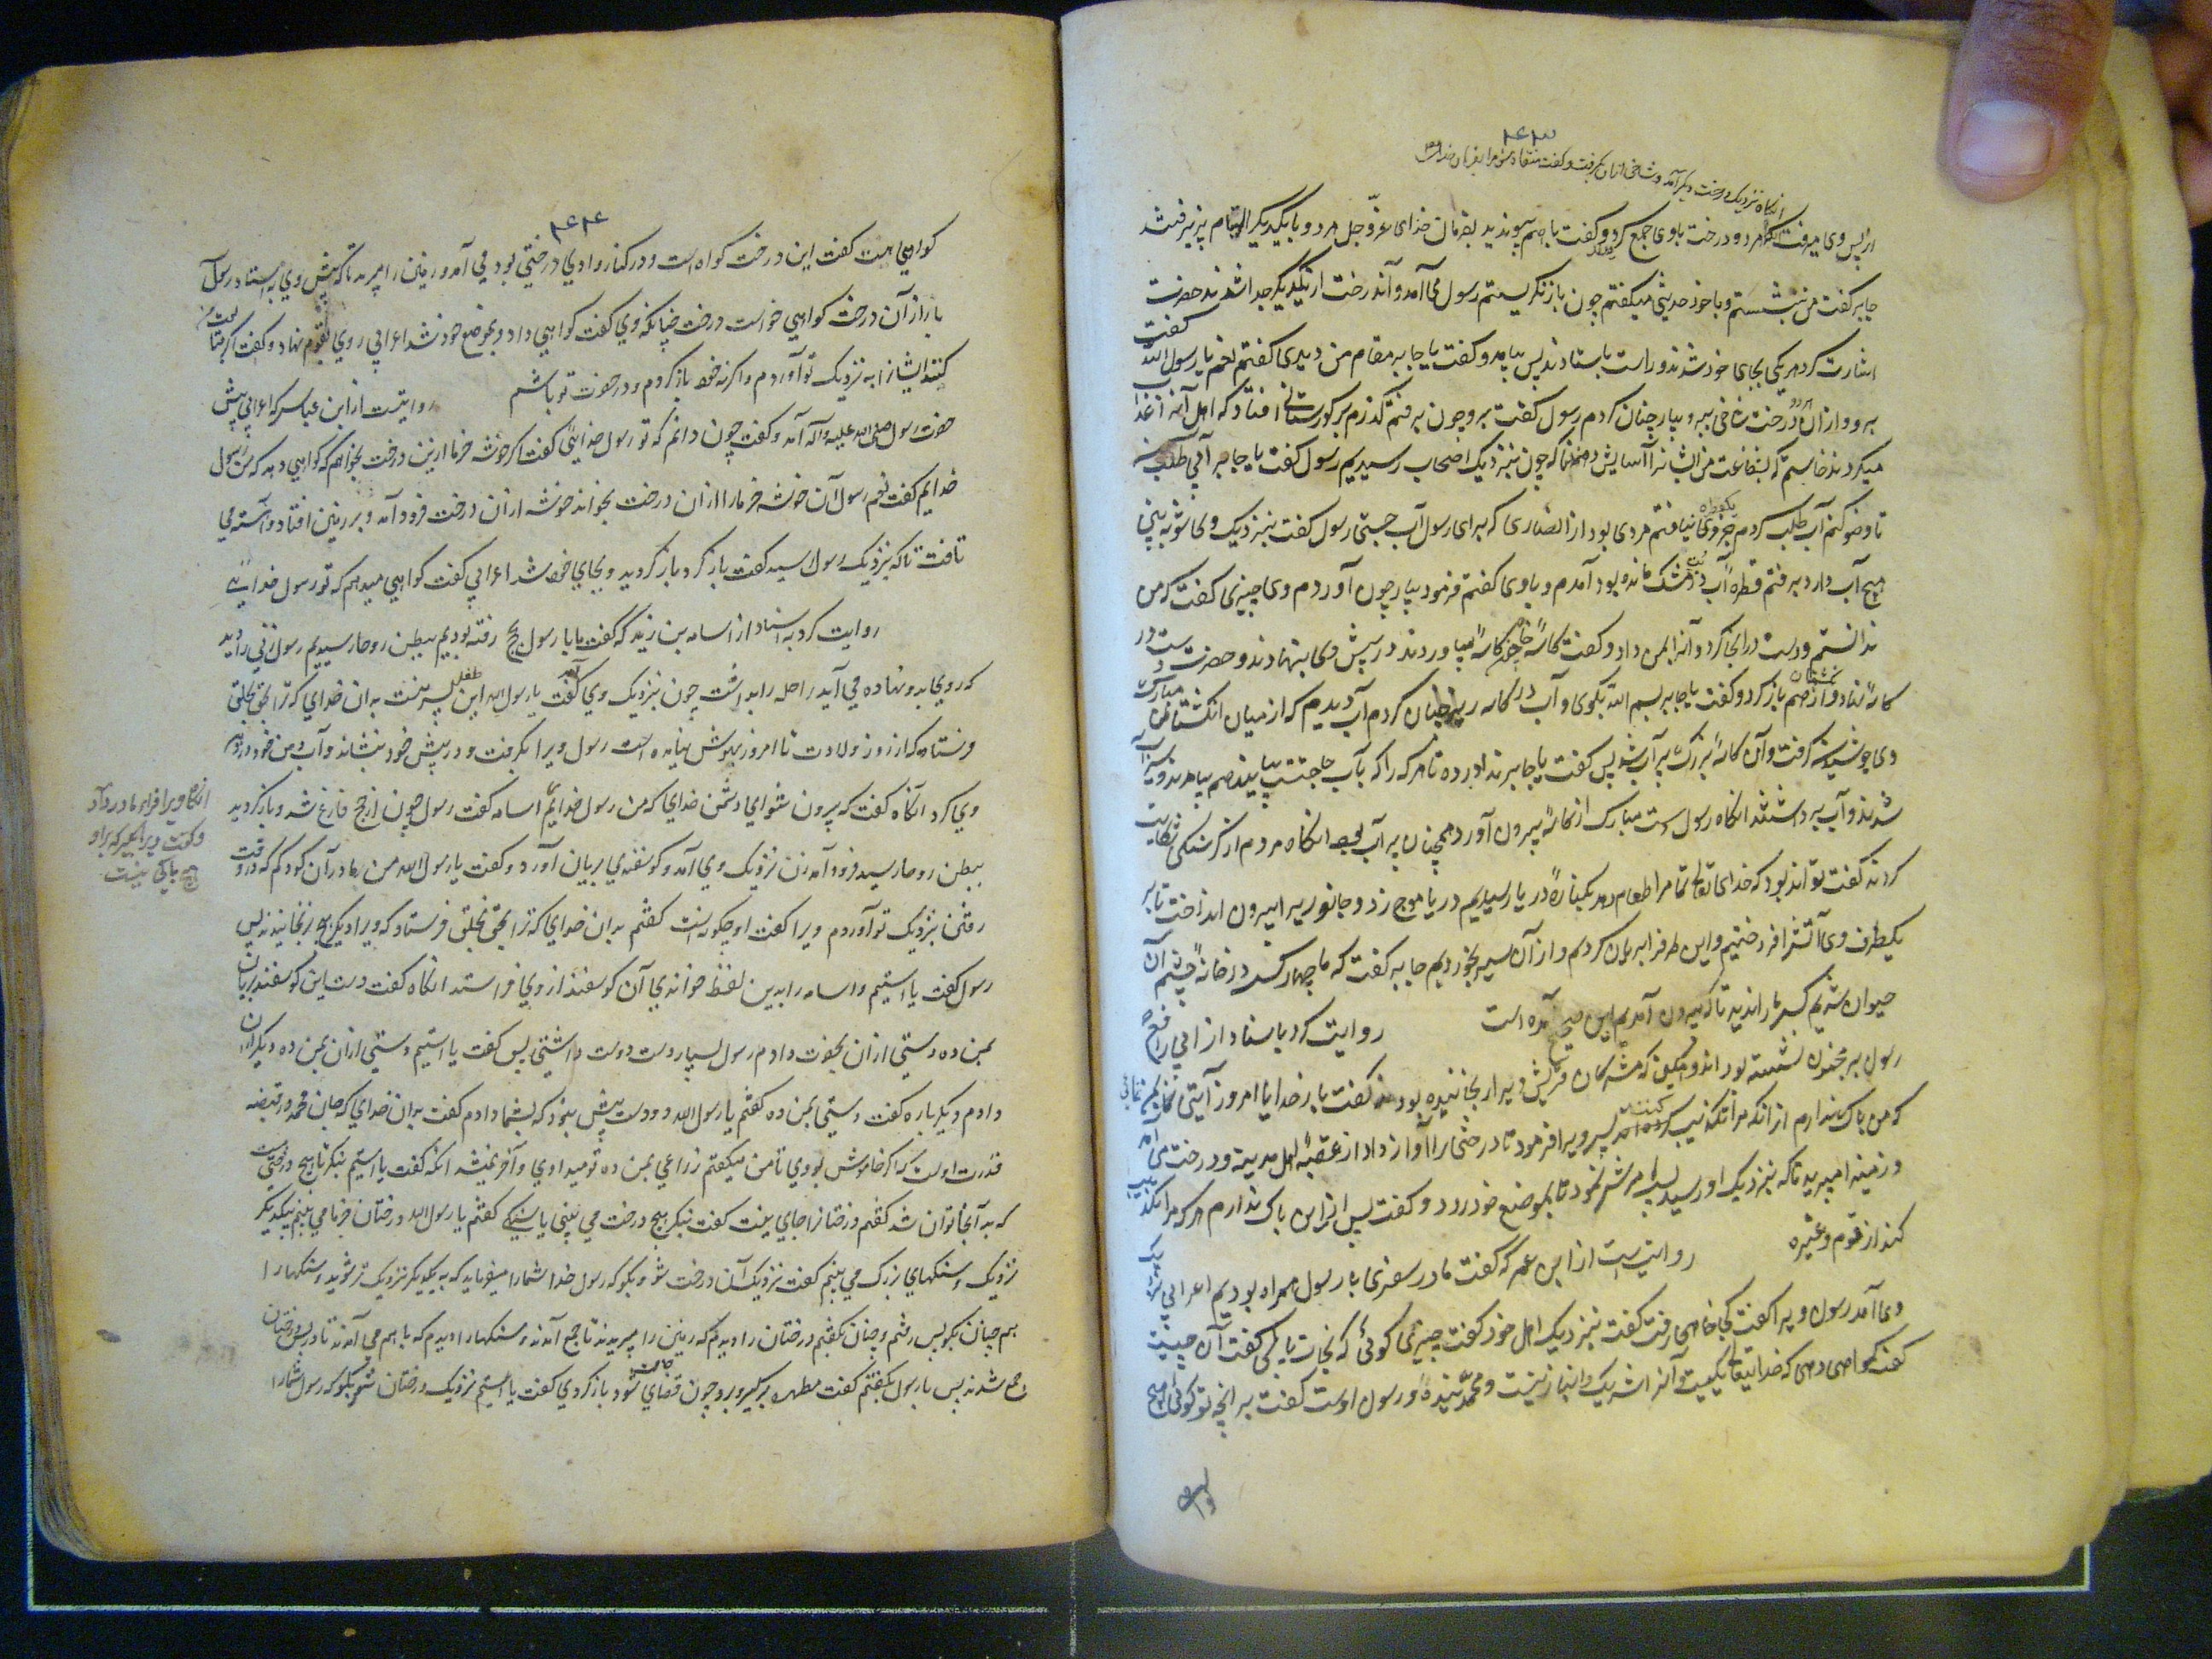 ۴۴۳
آنگاه نزدیک درخت دیگر آمد و شاخی از آن بگرفت و گفت منقاد شو مرا بفرمان خدای
از پس وی میرفت آنگاه هر دو درخت باوی جمع کرد و گفت باهم پیوندید بفرمان خدای عزّ وجل هر دو بایکدیگر التیام پذیرفتند
جابر گفت من بنشستم و باخود حدیثی میگفتم چون باز نگریستم رسول می آمد و آندرخت از یکدیگر جدا شدند حضرت
اشارت کرد هر یکی بجای خود شدند و راست باستادند پس بیامد و گفت یا جابر مقام من دیدی گفتم نعم یا رسول الله گفت
برو و از آن هر دو درخت شاخی ببر و بیار چنان کردم رسول گفت برو چون برفتم گذرم بر گورستانی افتاد که اهل آنرا عذاب
میکردند خواستم که بشفاعت من ایشانرا آسایش دهند آنگاه چون بنزدیک اصحاب رسیدیم رسول گفت یا جابر آبی طلب
تا وضو کنم آب طلب کردم جزوی نیافتم مردی بود از انصاری که برای رسول آب جستی رسول گفت بنزدیک وی شو به بین
هیچ آب دارد برفتم قطره آب در مشک مانده بود آمدم و باوی گفتم فرمود بیار چون آوردم وی چیزی گفت که من
ندانستم و دست در آنجا کرد و آنرا بمن داد و گفت کاسه خواه چون کاسه بیاوردند در پیش وی بنهادند و حضرت دست در
کاسه نهاد و انگشتان از هم باز کرد و گفت یا جابر بسم الله بگوی و آب در کاسه ریز چنان کردم آب دیدم که از میان انگشتان مبارک
وی جوشیدن گرفت و آن کاسه بزرگ پر آب شد پس گفت یا جابر ندا در ده تا هر که را که بآب حاجتست بیاید هم بیامدند و سیراب
شدند و آب برداشتند آنگاه رسول دست مبارک از کاسه بیرون آورد همچنان پر آب بود آنگاه مردم از گرسنگی شکایت
کردند گفت تواند بود که خدای تعالی شما را طعام دهد بکناره دریا رسیدیم دریا موج زد و جانوری را بیرون انداخت تا بر
یکطرف وی آتش افروختیم و این طرف را بریان کردیم و از آن سیر بخوردیم جابر گفت که ما چهار کس در خانه چشم آن
حیوان شدیم کس ما را ندید تا که بیرون آمدیم این صحیح آمده است روایت کرد باسناد از ابی رافع که
رسول بر مجنون نشسته بود اندوهگین که مشرکان قریش ویرا رنجانیده بودند گفت بار خدایا امروز آیتی بمن نمای
که من باک ندارم از آنکه مرا تکذیب کنند پس ویرا فرمود تا درختی را آواز داد از عقبه اهل مدینه و درخت می آمد
و زمین را میبرید تا که بنزدیک او رسید پس امرش نمود تا بموضع خود رود و گفت پس از این باک ندارم هر که مرا تکذیب
کند از قوم و عشیره روایتست از ابن عمر که گفت ما در سفری با رسول همراه بودیم اعرابی نزدیک
وی آمد رسول ویرا گفت کجا خواهی رفت گفت بنزدیک اهل خود گفت چیزی گوئی که نجات یابی گفت آن چیست
گفت گواهی دهی که خدایتعالی یکیست و آنرا شریک و انباز نیست و محمد بنده و رسول اوست گفت بر آنچه تو گوئی هیچ
۴۴۴
گواهی هست گفت این درخت گواه است و در کنار وادی درختی بود می آمد و زمین را میبرید تا که پیش وی بایستاد رسول
بار از آن درخت گواهی خواست درخت چنانکه وی گفت گواهی داد و بموضع خود شد اعرابی روی بقوم نهاد و گفت اگر متابعت
کنند ایشانرا به نزدیک تو آوردم و اگرنه خود باز گردم و در حضرت تو باشم روایتست از ابن عباس که اعرابی پیش
حضرت رسول صلی الله علیه و آله آمد و گفت چون دانم که تو رسول خدائی گفت اگر خوشه خرما از این درخت بخوانم که گواهی دهد که من رسول
خدایم گفت نعم رسول آن خوشه خرما را از آن درخت بخواند خوشه از آن درخت فرود آمد و بر زمین افتاد و آهسته می
تافت تا که بنزدیک رسول رسید گفت باز گرد باز گردید و بجای خود شد اعرابی گفت گواهی میدهم که تو رسول خدائی
روایت کرد به اسناد از اسامه بن زید که گفت ما با رسول بحج رفته بودیم ببطن روحا رسیدیم رسول زنی را دید
که روی بدو نهاده می آید راحله را بداشت چون بنزدیک وی آمد گفت یا رسول الله این طفل پسر منست بدان خدای که ترا بحق بخلق
فرستاد که از روز ولادت تا امروز بهوش نیامده است رسول ویرا بگرفت و در پیش خود بنشاند و آب دهن خود در دهن
وی کرد آنگاه گفت که بیرون شو ای دشمن خدای که من رسول خدایم اسامه گفت رسول چون از حج فارغ شد و باز گردید
ببطن روحا رسید فرود آمد زن نزدیک وی آمد و گوسفندی بریان آورد و گفت یا رسول الله من مادر آن کودکم که در وقت
رفتن بنزدیک تو آوردم ویرا گفت او چگونه است گفتم بدان خدای که ترا بحق بخلق فرستاد که ویرا دیگر هیچ نرنجانیدند پس
رسول گفت یا اسیم و اسامه را بدین لفظ خواندی آن گوسفند از وی فراستد آنگاه گفت دست این گوسفند بریان
بمن ده دستی از آن بحضرت دادم رسول بسیار دست دوست داشتی پس گفت یا اسیم دستی از آن بمن ده دیگر از آن
دادم دیگر باره گفت دستی بمن ده گفتم یا رسول الله دو دست پیش نبود که بشما دادم گفت بدان خدای که جان محمد در قبضه
قدرت اوست که اگر خاموش بودی تا من میگفتم ذراعی بمن ده تو میدادی و آخر نمیشد آنگه گفت یا اسیم بنگر تا هیچ درختی هست
که بدانجا توان شد گفتم درختانرا جای نیست گفت بنگر هیچ درخت می بینی یا سنگی گفتم یا رسول الله درختان خرما می بینم بیکدیگر
نزدیک و سنگهای بزرگ می بینم گفت نزدیک آن درخت شو و بگو که رسول خدا شما را میفرماید که به یکدیگر نزدیک تر شوید و سنگها را
هم چنان بگو پس رفتم و چنان بگفتم درختان را دیدم که زمین را میبریدند تا جمع آمدند و سنگها را دیدم که با هم می آمدند تا در پس درختان
جمع شدند پس با رسول بگفتم گفت مطهره برگیر و برو چون قضای حاجت شود باز گردی گفت یا اسیم نزدیک درختان شو بگو که رسول شما را
آنگاه ویرا فرا مادر داد
و گفت ویرا بگیر که بر او
هیچ باکی نیست